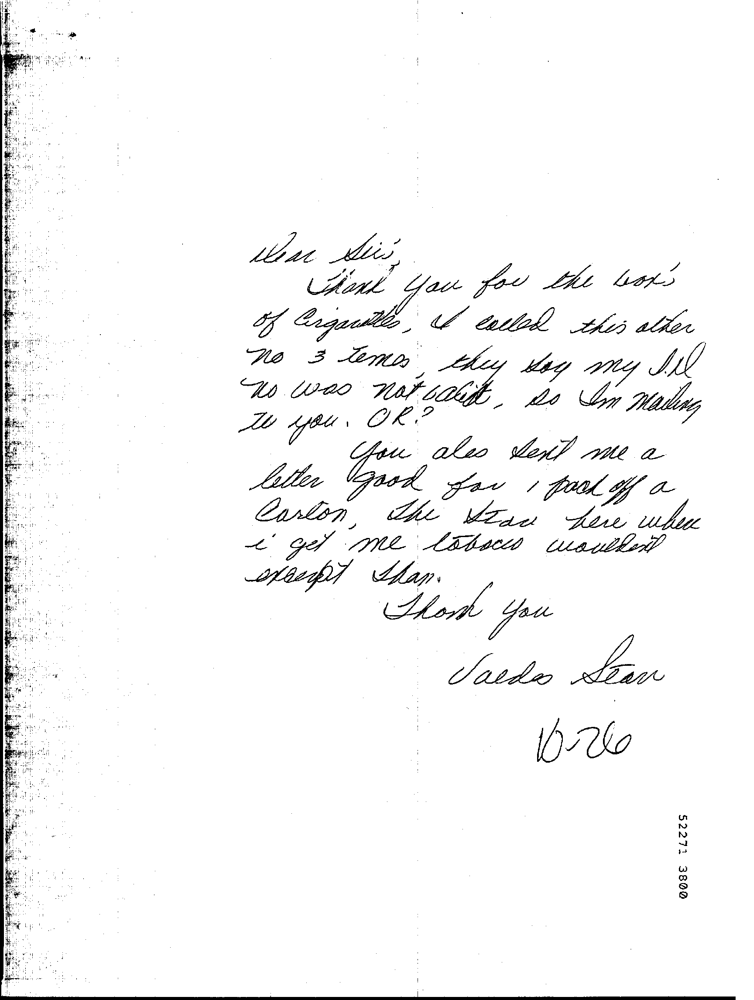 Dear Sir,
Thank you for the box's
of Cirgarettes, I called this other
no 3 temes, they say my I.D
no was not valid, so Im mailing
to you. OK?
You also sent me a
letter good for 1 pack off a
Carton, The Stor here where
i get me tobacco wouldent
except
Thank you
Starr
10-26
52271 3800